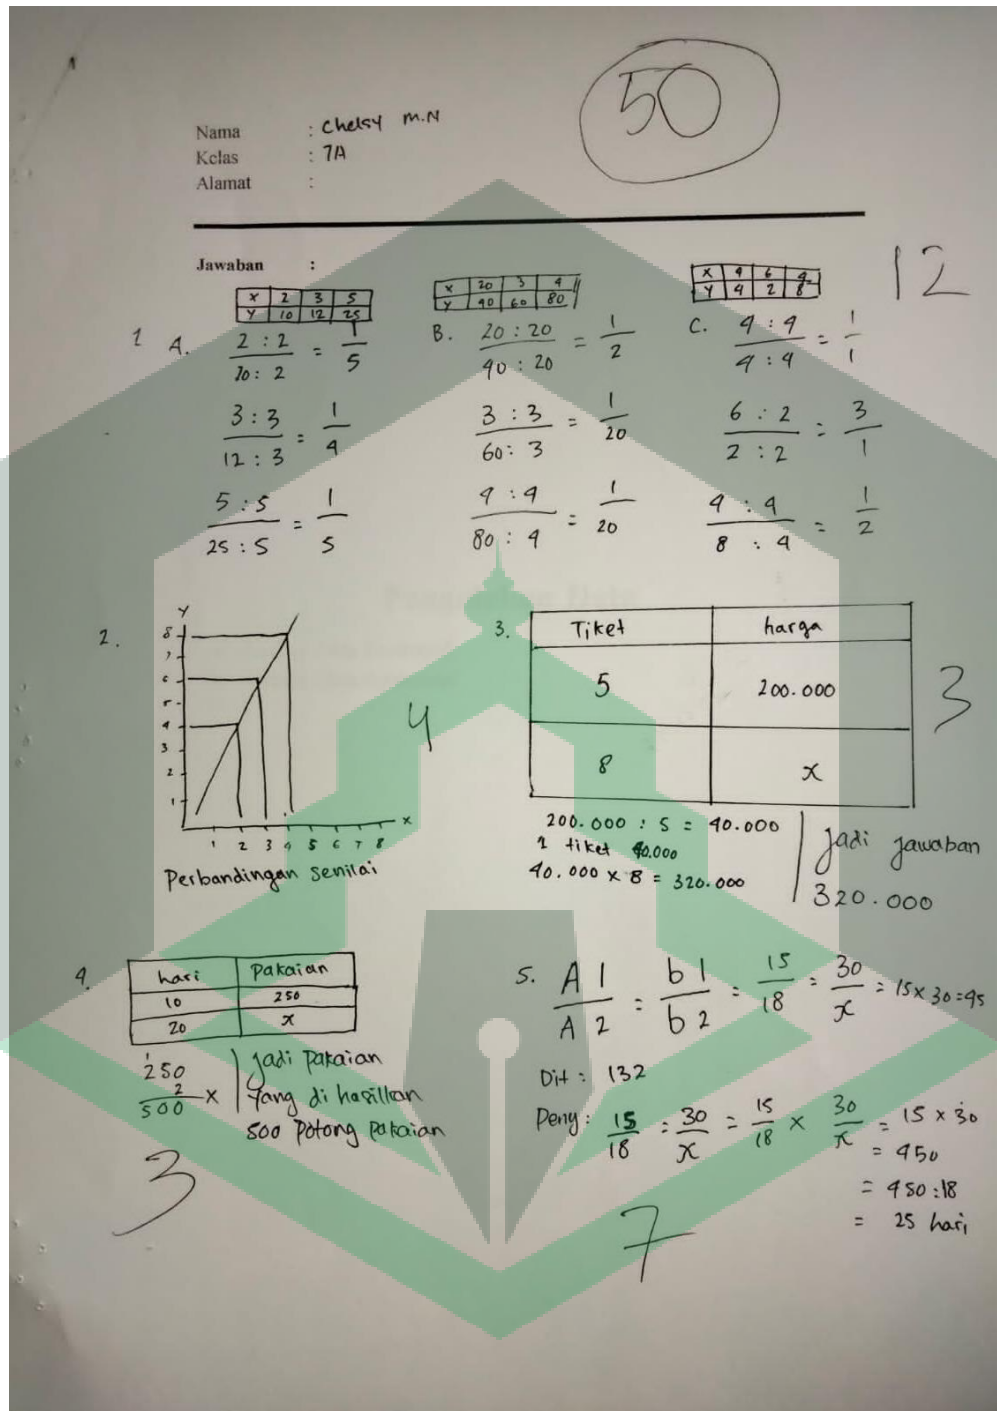 50
Nama : Chelsy M.N
Kelas : 7A
Alamat :
Jawaban :
12
x 2 3 5
y 10 12 25
x 20 3 4
y 40 60 80
x 4 6 4
y 4 2 8
1 A. 2 : 2 / 10 : 2 = 1/5
3 : 3 / 12 : 3 = 1/4
5 : 5 / 25 : 5 = 1/5
B. 20 : 20 / 40 : 20 = 1/2
3 : 3 / 60 : 3 = 1/20
4 : 4 / 80 : 4 = 1/20
C. 4 : 4 / 4 : 4 = 1/1
6 : 2 / 2 : 2 = 3/1
4 : 4 / 8 : 4 = 1/2
2.
Y
8
7
6
5
4
3
2
1
1 2 3 4 5 6 7 8 x
Perbandingan senilai
4
3.
Tiket harga
5 200.000
8 x
3
200.000 : 5 = 40.000
1 tiket 40.000
40.000 x 8 = 320.000
jadi jawaban
320.000
4.
hari Pakaian
10 250
20 x
1
250
2 x
500
jadi pakaian
yang di hasilkan
500 potong pakaian
3
5. A1/A2 = b1/b2 = 15/18 = 30/x = 15 x 30 = 45
Dit : 132
Peny : 15/18 = 30/x = 15/18 x 30/x = 15 x 30
= 450
= 450 : 18
= 25 hari
7